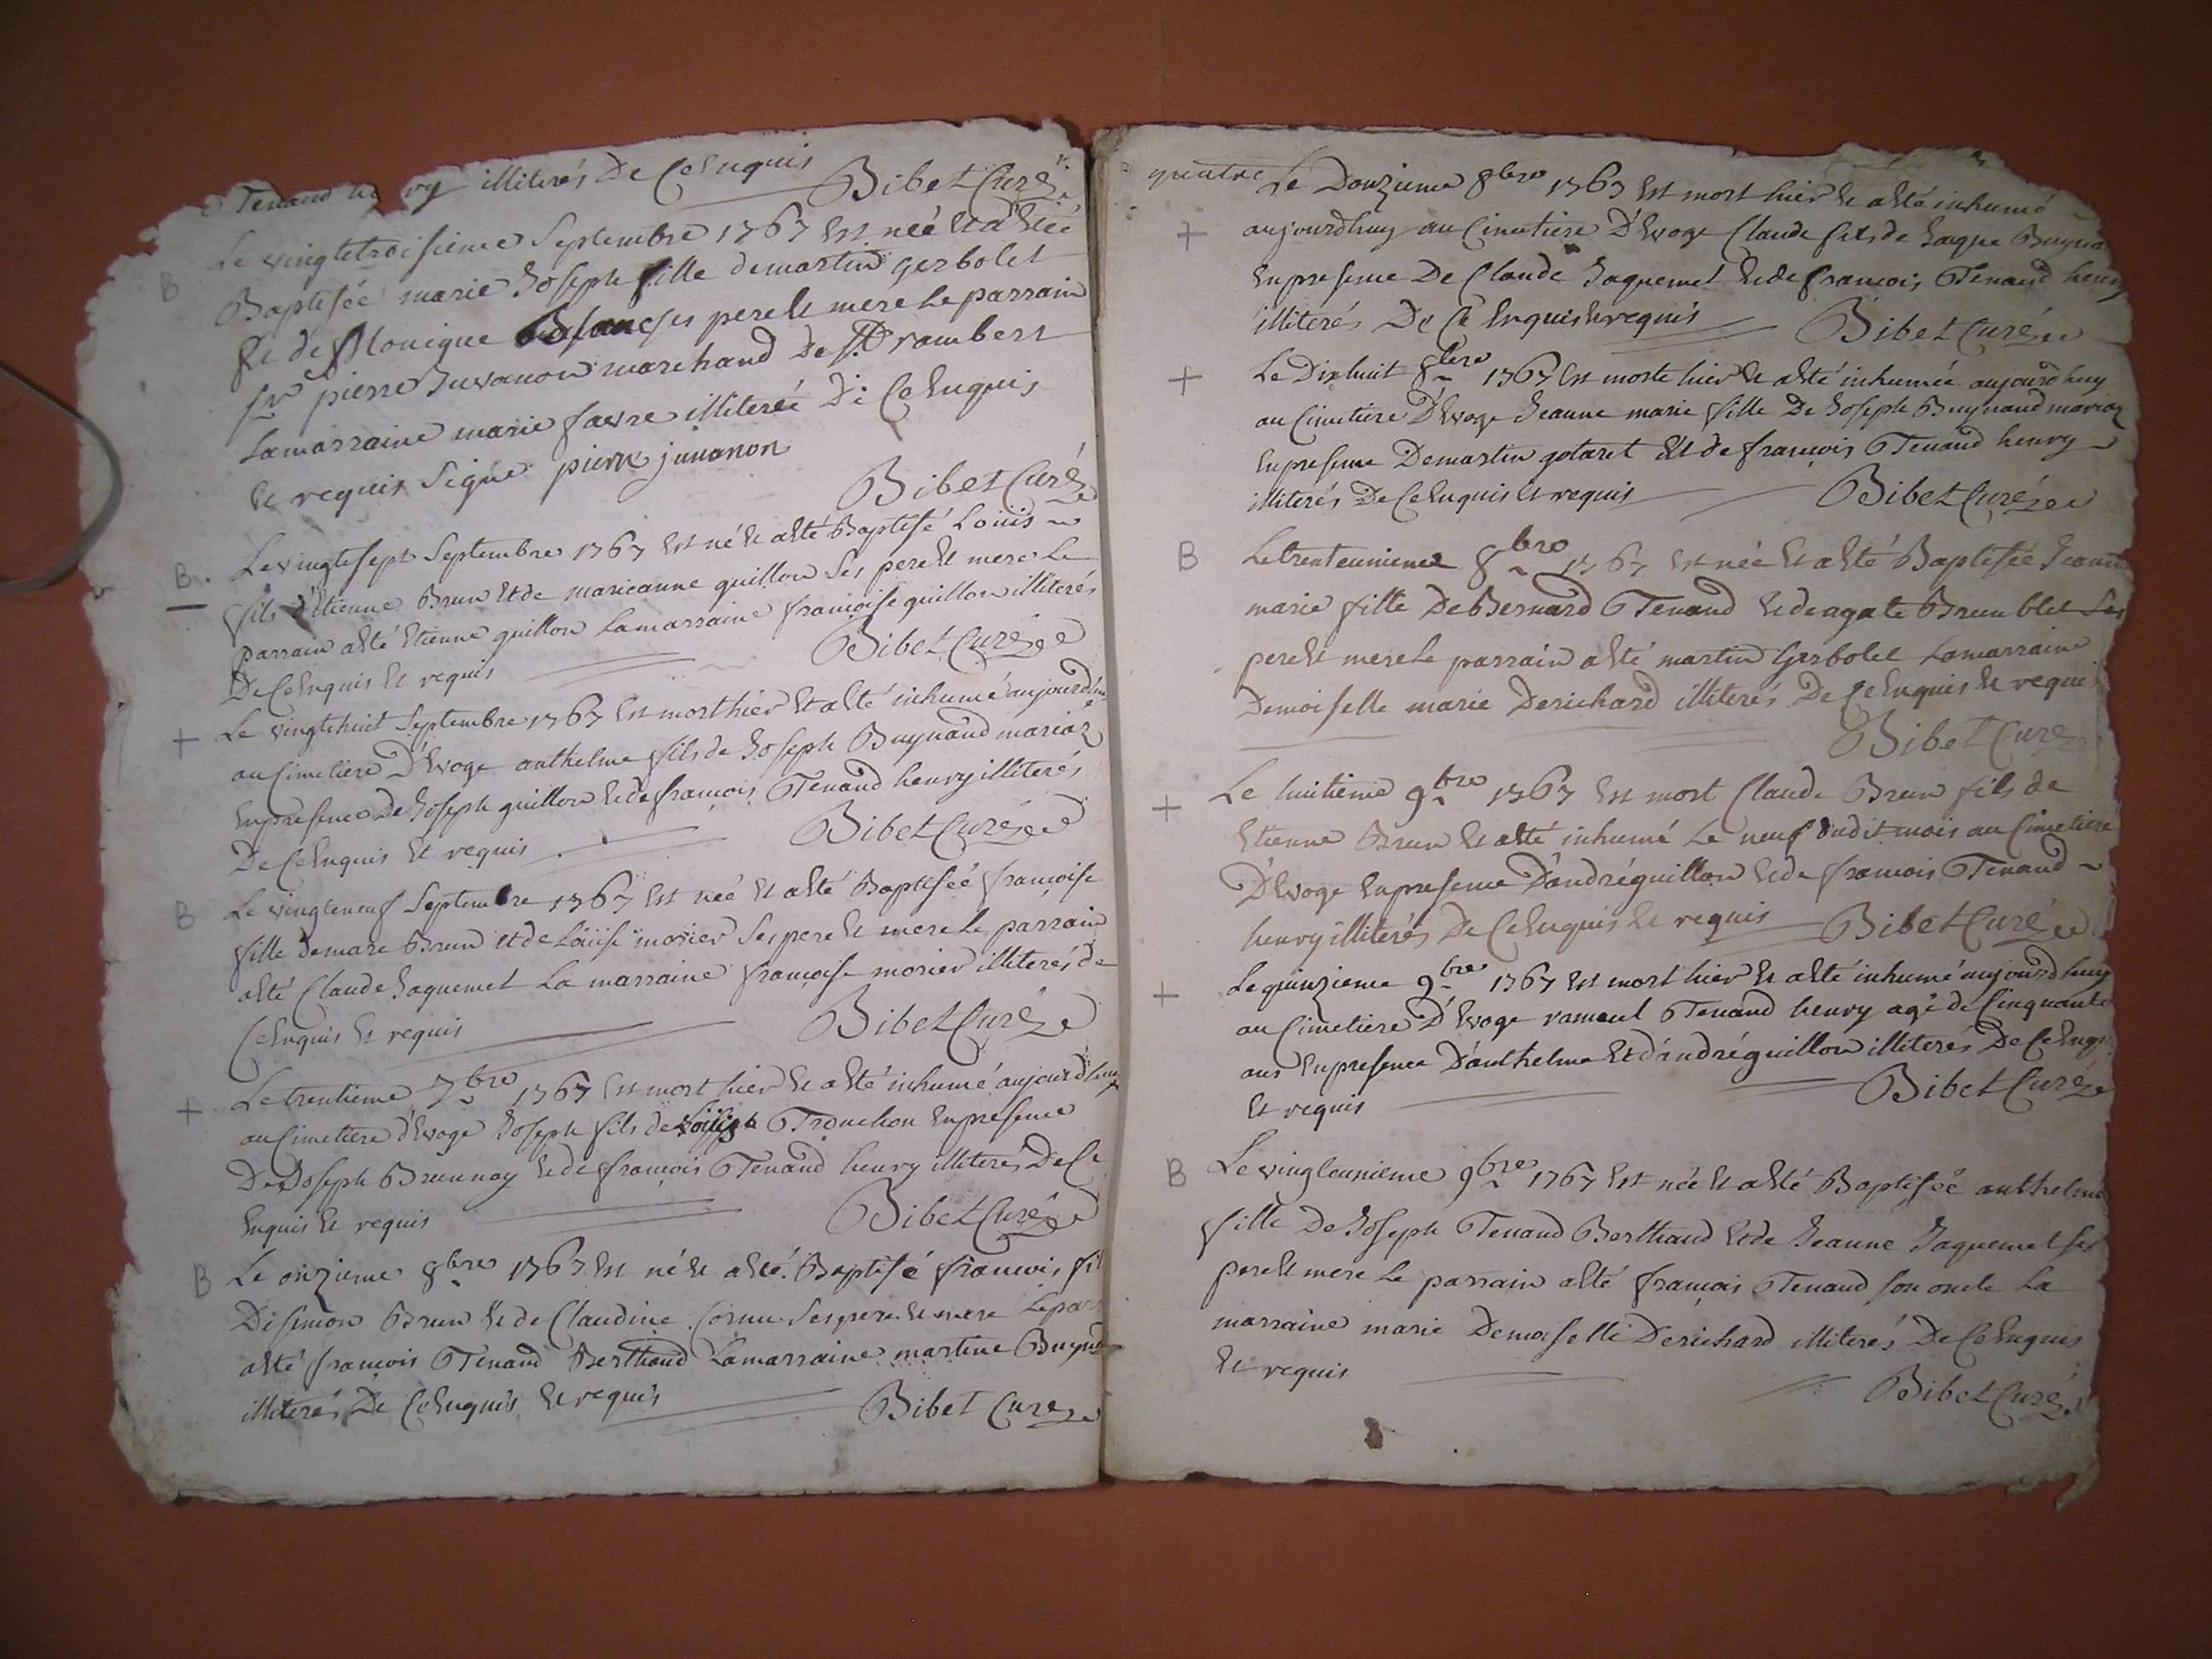 Tenand henry illiterés De Ce Enquis
Bibet Curé
B
Le vingtetroisieme Septembre 1767 Est née Et a Eté
Baptisée marie Joseph fille demartin gerbolet
Et de Monique ses pere Et mere Le parrain
Sr pierre Juvanon marchand De St rambert
Lamarraine marie favre illiterée De Ce Enquis
Et requis Signé pierre juvanon
Bibet Curé
B.
Le vingtesept Septembre 1767 Est né Et a Eté Baptisé Loüis
fils d'Etienne Brun Et de marieanne guillon Ses pere Et mere Le
parrain a Eté Etienne guillon Lamarraine françoise guillon illiterés
De Ce Enquis Et requis
Bibet Curé
+
Le vingtehuit Septembre 1767 Est mort hier Et a Eté inhumé aujourdhu
au Cimetiere D'Evoge anthelme fils de Joseph Buynand mariaz
En presence De Joseph guillon Et de françois Tenand henry illiterés
De Ce Enquis Et requis
Bibet Curé
B
Le vingteneuf Septembre 1767 Est née Et a Eté Baptisée françoise
fille demare Brun et de Loüise morier Ses pere Et mere Le parrain
a Eté Claude Jaquemet La marraine françoise morier illiterés de
Ce Enquis Et requis
Bibet Curé
+
Le trentieme 7bre 1767 Est mort hier Et a Eté inhumé aujourdhuy
au Cimetiere d'Evoge Joseph fils de Truchon En presence
De Joseph Brunnay Et de françois Tenand henry illiterés De Ce
Enquis Et requis
Bibet Curé
B
Le onzieme 8bre 1767 Est né Et a Eté Baptisé françois fil
De Simon Brun Et de Claudine Cornu Ses pere Et mere Le par
a Eté françois Tenand Berthaud Lamarraine martine Buynd
illiterés De Ce Enquis Et requis
Bibet Curé
quatre
+
Le Douzieme 8bre 1767 Est mort hier Et a Eté inhumé
aujourdhuy au Cimetiere D'Evoge Claude fils de Jaque Buyna
En presence De Claude Jaquemet Et de françois Tenand henry
illiterés De Ce Enquis Et requis
Bibet Curé
+
Le Dixhuit 8bre 1767 Est morte hier Et a Eté inhumée aujourdhuy
au Cimetiere D'Evoge Jeanne marie fille De Joseph Buynand mariaz
En presence De martin gotaret Et de françois Tenand henry
illiterés De Ce Enquis Et requis
Bibet Curé
B
Le trenteunieme 8bre 1767 Est née Et a Eté Baptisée Jeanne
marie fille De Bernard Tenand Et de agate Brun blet Ses
pere Et mere Le parrain a Eté martin Gerbolet Lamarraine
Demoiselle marie Derichard illiterés De Ce Enquis Et requi
Bibet Curé
+
Le huitieme 9bre 1767 Est mort Claude Brun fils de
Etienne Brun Et a Eté inhumé Le neuf dudit mois au Cimetiere
D'Evoge En presence D'andré guillon Et de françois Tenand
henry illiterés De Ce Enquis Et requis
Bibet Curé
+
Le quinzieme 9bre 1767 Est mort hier Et a Eté inhumé aujourdhuy
au Cimetiere D'Evoge Tenand henry agé de Cinquante
ans En presence D'anthelme Et d'andré guillon illiterés De Ce Enqu
Et requis
Bibet Curé
B
Le vingteunieme 9bre 1767 Est née Et a Eté Baptisée anthelme
fille De Joseph Tenand Berthaud Et de Jeanne Jaquemet ses
pere Et mere Le parrain a Eté françois Tenand son oncle La
marraine marie Demoiselle Derichard illiterés De Ce Enquis
Et requis
Bibet Curé